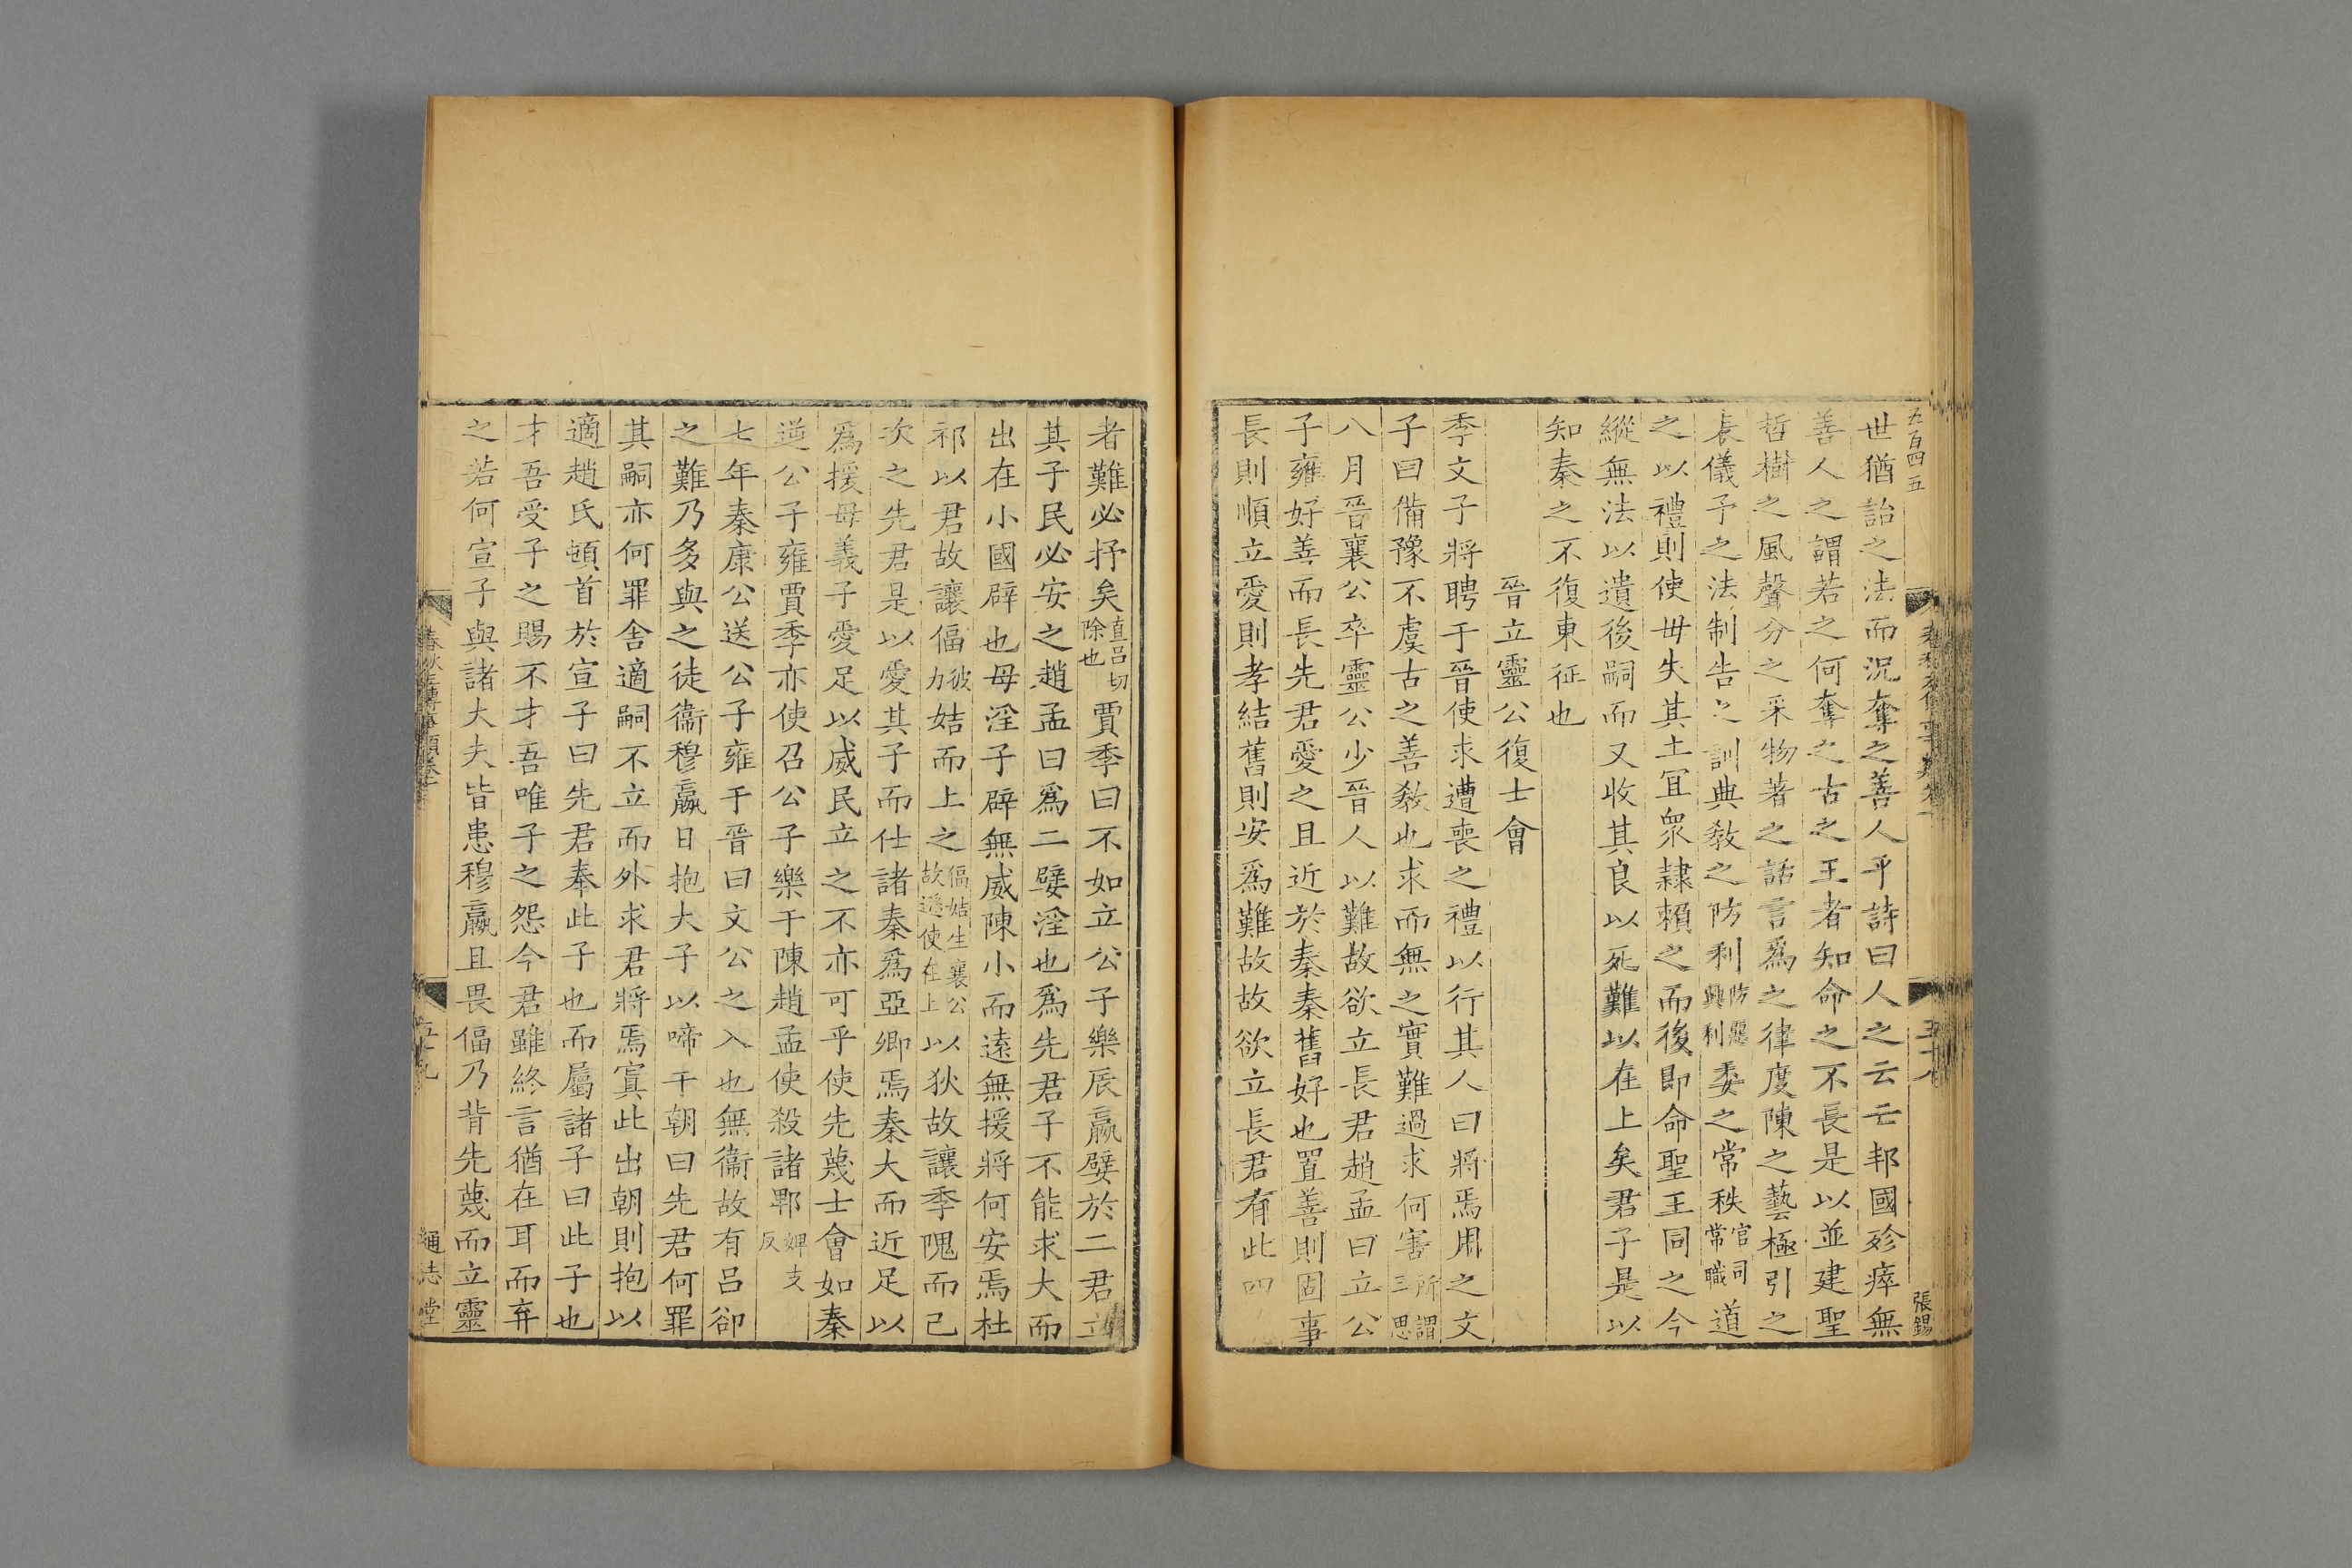 五百四五
世猶詒之法而況奪之善人乎詩曰人之云亡邦國殄瘁無
善人之謂若之何奪之古之王者知命之不長是以並建聖
哲樹之風聲分之采物著之話言爲之律度陳之藝極引之
表儀予之法制告之訓典敎之防利防惡興利委之常秩官司常職道
之以禮則使毋失其土宜衆隸賴之而後即命聖王同之今
縱無法以遺後嗣而又收其良以死難以在上矣君子是以
知秦之不復東征也
晉立靈公復士會
季文子將聘于晉使求遭喪之禮以行其人曰將焉用之文
子曰備豫不虞古之善敎也求而無之實難過求何害所謂三思
八月晉襄公卒靈公少晉人以難故欲立長君趙孟曰立公
子雍好善而長先君愛之且近於秦秦舊好也置善則固事
長則順立愛則孝結舊則安爲難故故欲立長君有此四
張錫
者難必抒矣直呂切除也賈季曰不如立公子樂辰嬴嬖於二君立
其子民必安之趙孟曰爲二嬖淫也爲先君子不能求大而
出在小國辟也母淫子辟無威陳小而遠無援將何安焉杜
祁以君故讓偪彼力姞而上之偪姞生襄公故遜使在上以狄故讓季隗而己
次之先君是以愛其子而仕諸秦爲亞卿焉秦大而近足以
爲援母義子愛足以威民立之不亦可乎使先蔑士會如秦
逆公子雍賈季亦使召公子樂于陳趙孟使殺諸郫婢支反
七年秦康公送公子雍于晉曰文公之入也無衞故有呂卻
之難乃多與之徒衞穆嬴日抱大子以啼于朝曰先君何罪
其嗣亦何罪舍適嗣不立而外求君將焉寘此出朝則抱以
適趙氏頓首於宣子曰先君奉此子也而屬諸子曰此子也
才吾受子之賜不才吾唯子之怨今君雖終言猶在耳而弃
之若何宣子與諸大夫皆患穆嬴且畏偪乃背先蔑而立靈
春秋三傳事類卷十
五十九
通志堂